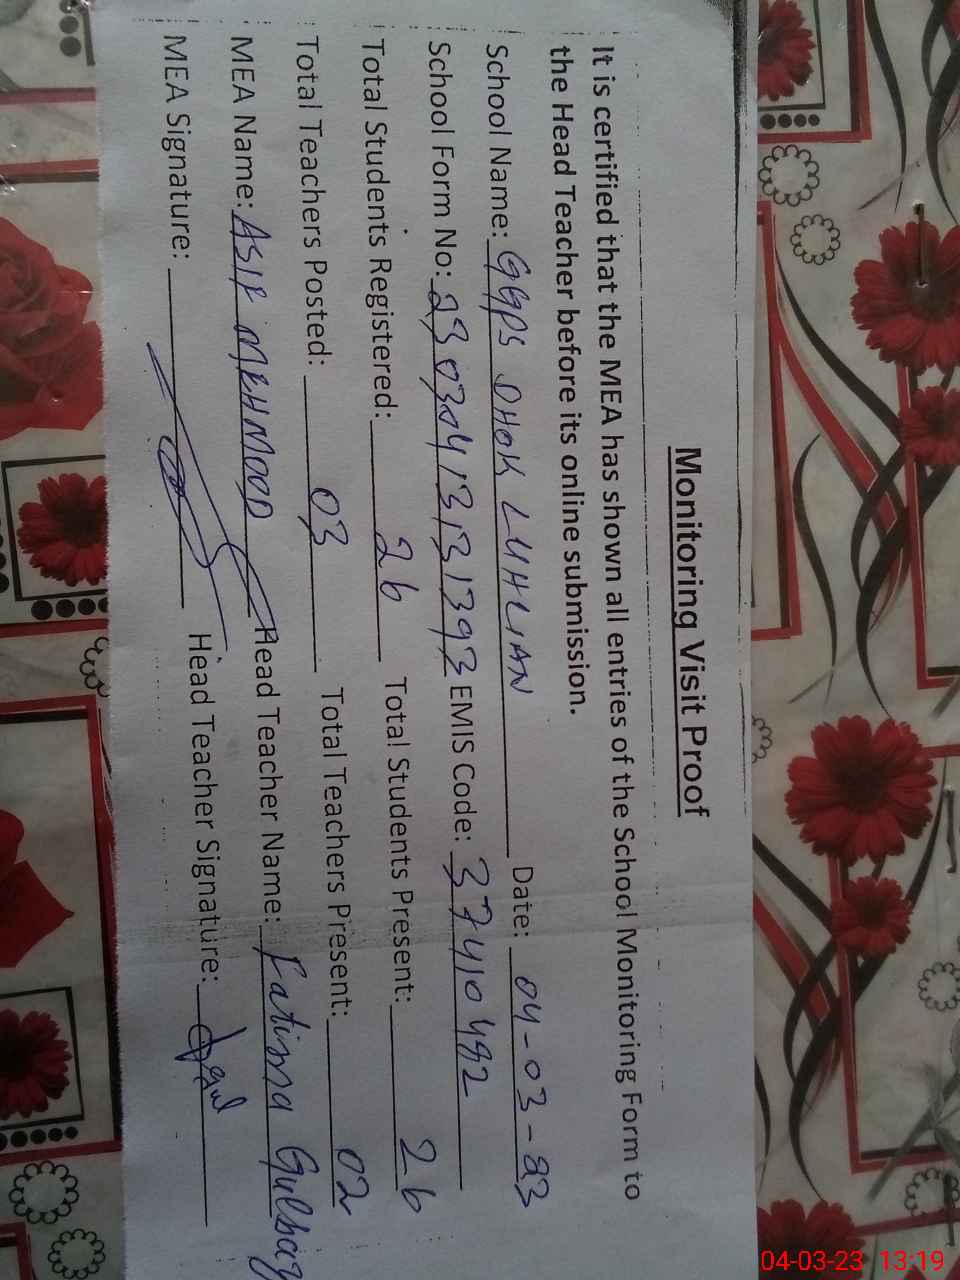 Monitoring Visit Proof
It is certified that the MEA has shown all entries of the School Monitoring Form to
the Head Teacher before its online submission.
School Name: GGPS DHOK LUHLIAN Date: 04-03-23
School Form No: 23030413131393 EMIS Code: 37410492
Total Students Registered: 26 Total Students Present: 26
Total Teachers Posted: 03 Total Teachers Present: 02
MEA Name: ASIF MEHMOOD Head Teacher Name: Fatima
MEA Signature: Head Teacher Signature:
04-03-23 13:19